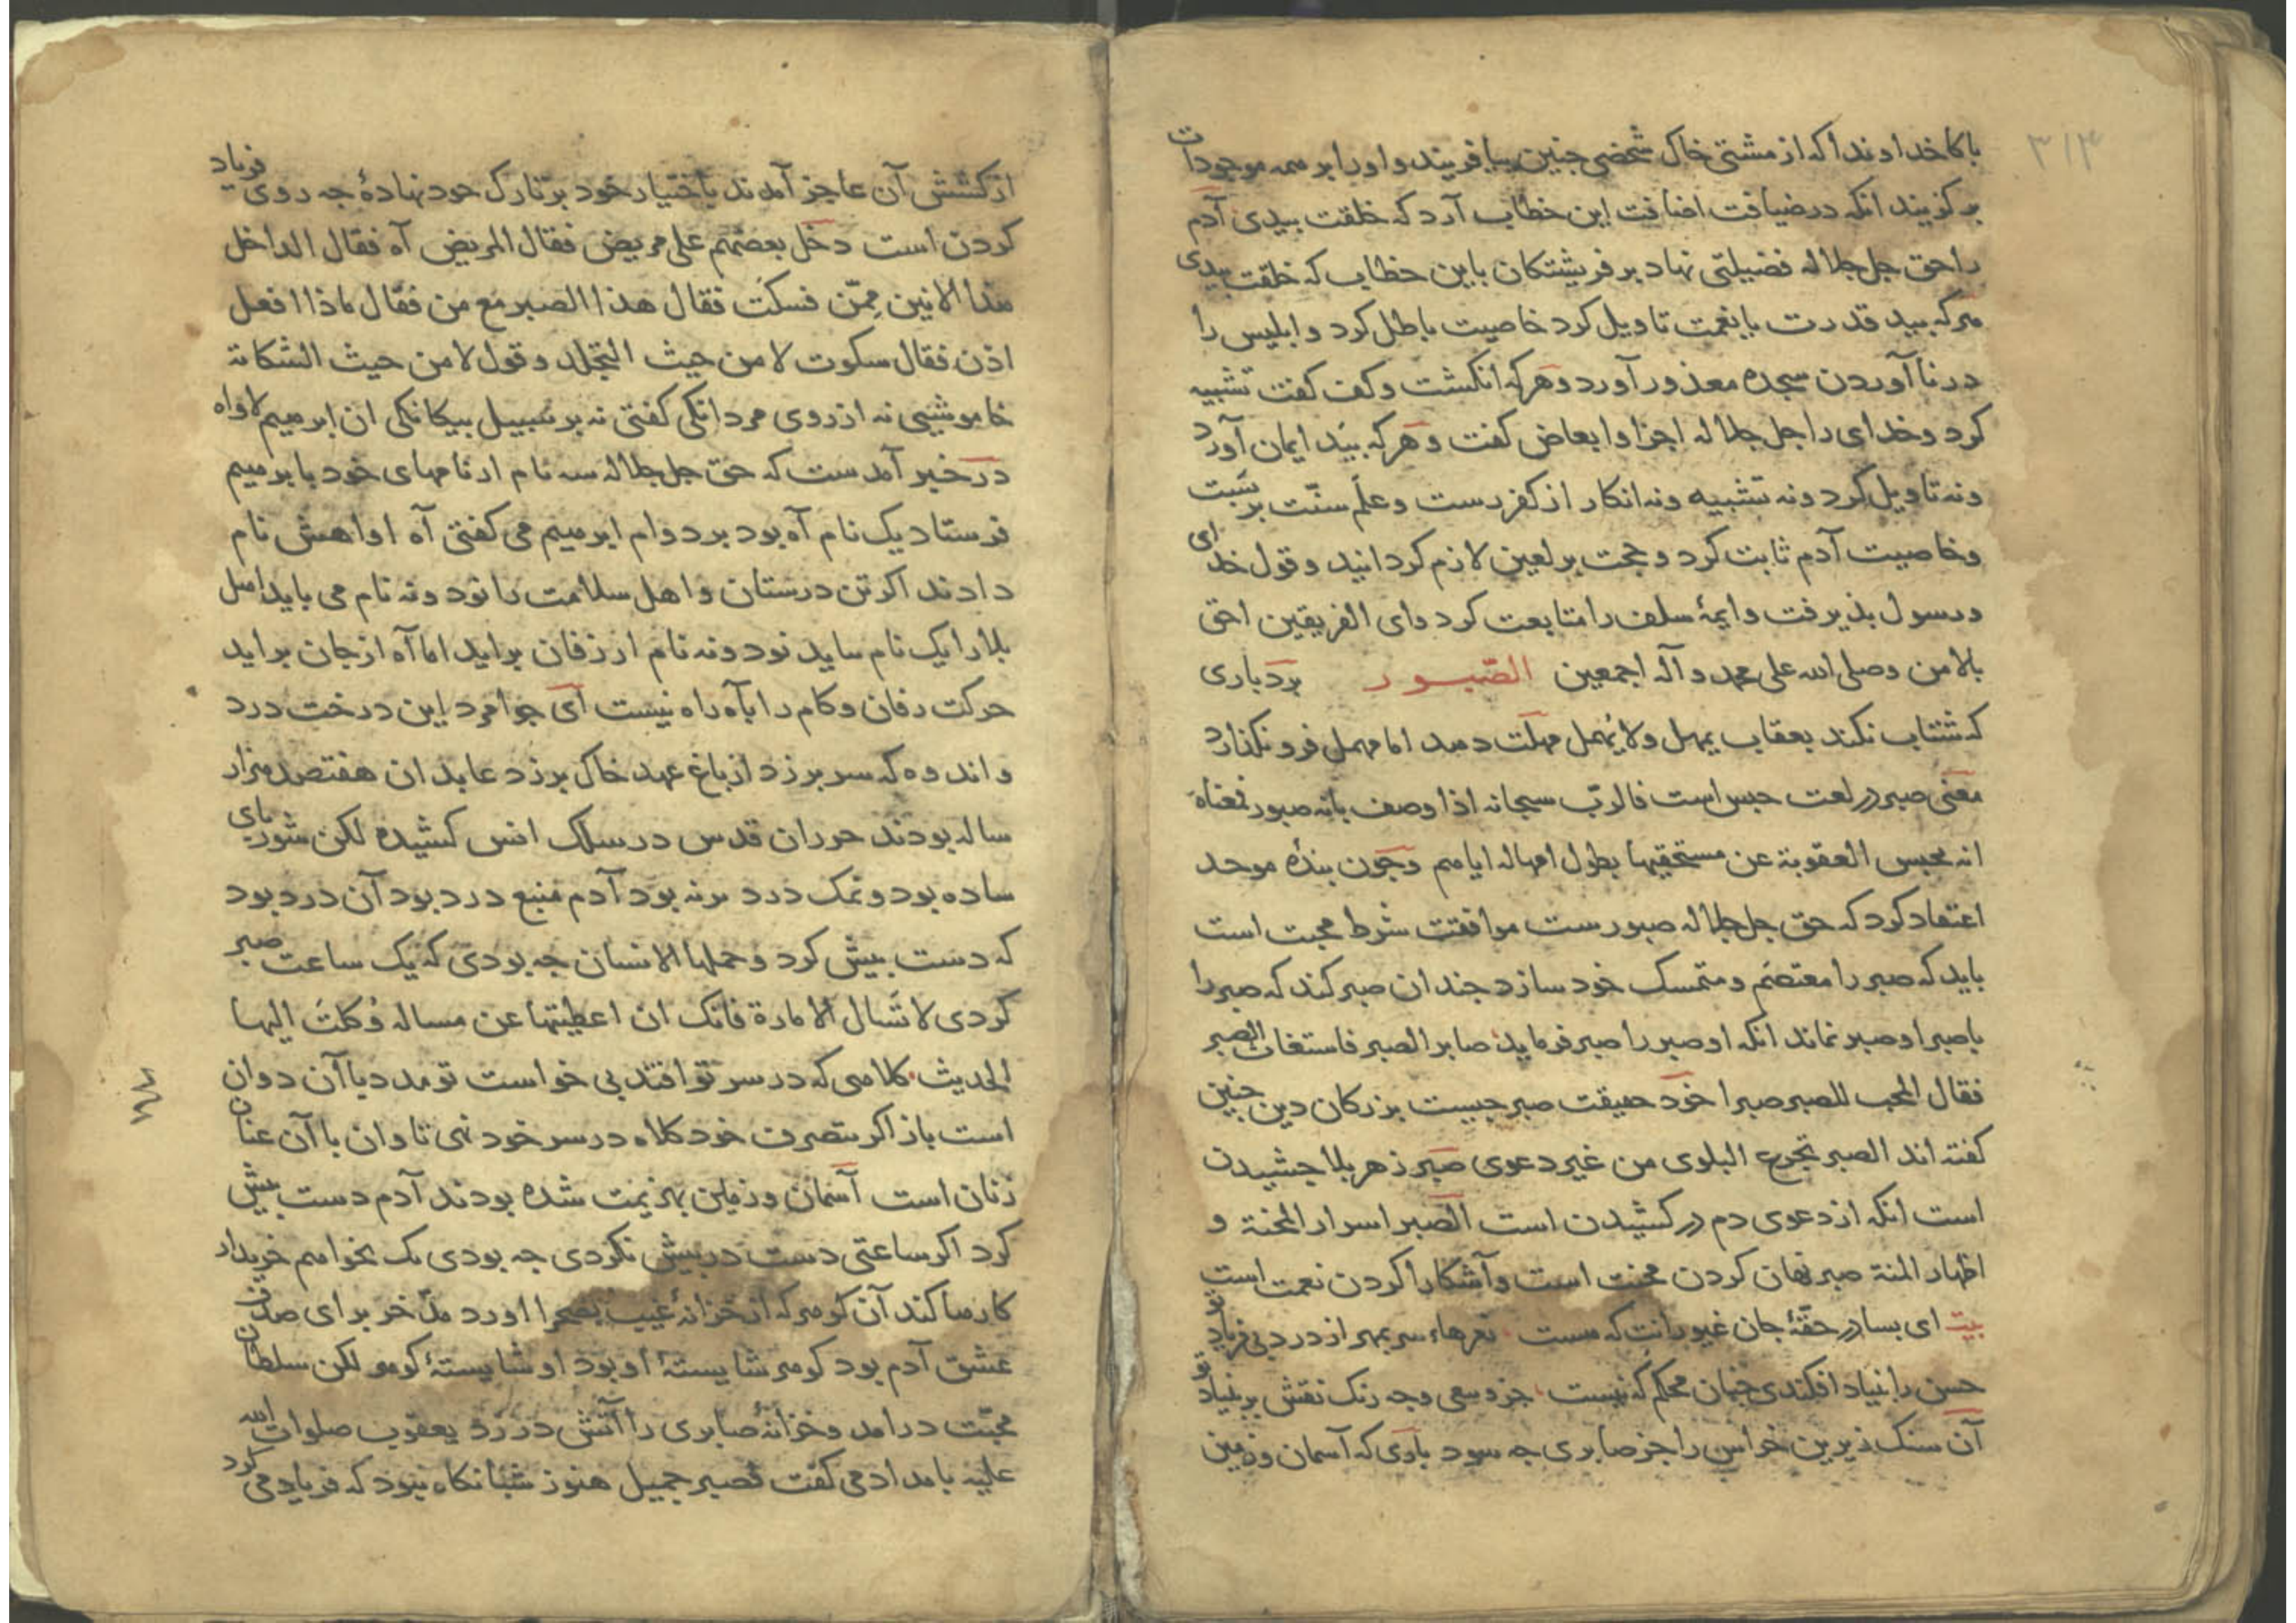 ٣١٣
باكا خداوندا كه از مشتى خاك شخصى جنين بيافريند و او را بر همه موجودات
بركزيند انكه در ضيافت اضافت اين خطاب آرد كه خلقت بيدى آدم
را حق جل جلاله فضيلتى نهاد بر فريشتكان باين خطاب كه خلقت بيدى
هركه بيد قدرت يا نعمت تاويل كرد خاصيت باطل كرد و ابليس را
در نا آوردن سجده معذور آورد و هركه انكشت و كف كفت تشبيه
كرد و خداى را جل جلاله اجزا و ابعاض كفت و هركه بيد ايمان آورد
و نه تاويل كرد و نه تشبيه و نه انكار از كفر رست و علم سنت بر
و خاصيت آدم ثابت كرد و حجت بر لعين لازم كردانيد و قول خداى
و رسول بذيرفت و ايمۀ سلف را متابعت كرد واى الفريقين احق
بالامن وصلى الله على محمد وآله اجمعين الصّبور بردبارى
كه شتاب نكند بعقاب يمهل ولا يُهمل مهلت دهد اما مهمل فرو نكذارد
معنى صبر در لعت حبس است فالرب سبحانه اذا وصف بانه صبور فمعناه
انه يحبس العقوبة عن مستحقيها بطول امهاله اياهم و جون بنده موحد
اعتقاد كرد كه حق جل جلاله صبورست موافقت شرط محبت است
بايد كه صبر را معتصَم و متمسك خود سازد جندان صبر كند كه صبر را
با صبر او صبر نماند انكه او صبر را صبر فرمايد صابر الصبر فاستغاث الصبر
فقال المحب للصبر صبرا خود حقيقت صبر جيست بزركان دين جنين
كفته اند الصبر تجرع البلوى من غير دعوى صبر زهر بلا جشيدن
است انكه از دعوى دم در كشيدن است الصبر اسرار المحنة و
اظهار المنة صبر نهان كردن محنت است و آشكارا كردن نعمت است
بيت اى بسا در حقۀ جان غيورانت كه هست نعرهاء سر بمهر از درد بى فرياد تو
حسن را بنياد افكندى جنان محكم كه نيست جز و سعى وجه رنك نقش بر بنياد تو
آن سنك زيرين خراس را جز صابرى جه سود بارى كه آسمان و زمين
از كشش آن عاجز آمدند باختيار خود بر تارك خود نهادۀ جه روى فرياد
كردن است دخل بعضهم على مريض فقال المريض آه فقال الداخل
هذا الانين ممّن فسكت فقال هذا الصبر مع من فقال ماذا افعل
اذن فقال سكوت لا من حيث التجلد وقول لا من حيث الشكاية
خاموشيى نه از روى مردانكى كفتى نه بر سبيل بيكانكى ان ابرهيم لاواه
در خبر آمدست كه حق جل جلاله سه نام از نامهاى خود بابرهيم
فرستاد يك نام آه بود بر دوام ابرهيم مى كفتى آه اواهش نام
دادند اكر تن درستان و اهل سلامت را نود و نه نام مى بايد اهل
بلا را يك نام بايد نود و نه نام از زفان برايد اما آه از جان برايد
حركت زفان و كام را بآه راه نيست اى جوامرد اين درخت درد
و اندوه كه سر برزد از باغ عهد خاك برزد عابدان هفتصد هزار
ساله بودند حوران قدس در سلك انس كشيده لكن شورباى
ساده بود و نمك درد برنه بود آدم منبع درد بود آن درد بود
كه دست بيش كرد و حملها الانسان جه بودى كه يك ساعت صبر
كردى لا تسال الامارة فانك ان اعطيتها عن مساله وُكلتَ اليها
الحديث كلاهى كه در سر تو افتد بى خواست تو مدد با آن دوان
است باز اكر بتصرف خود كلاه در سر خود نهى تاوان با آن عنان
زنان است آسمان و زمين بهزيمت شده بودند آدم دست بيش
كرد اكر ساعتى دست در بيش نكردى جه بودى يك بخواهم خريدار
كار رها كند آن كوهر كه از خزانۀ غيب بصحرا اورد مدّخر براى صدف
عشق آدم بود كوهر شايستۀ او بود او شايستۀ كوهر لكن سلطان
محبّت درامد و خزانۀ صابرى را آتش در زد يعقوب صلوات الله
عليه بامداد مى كفت فصبر جميل هنوز شبانكاه نبود كه فرياد مى كرد